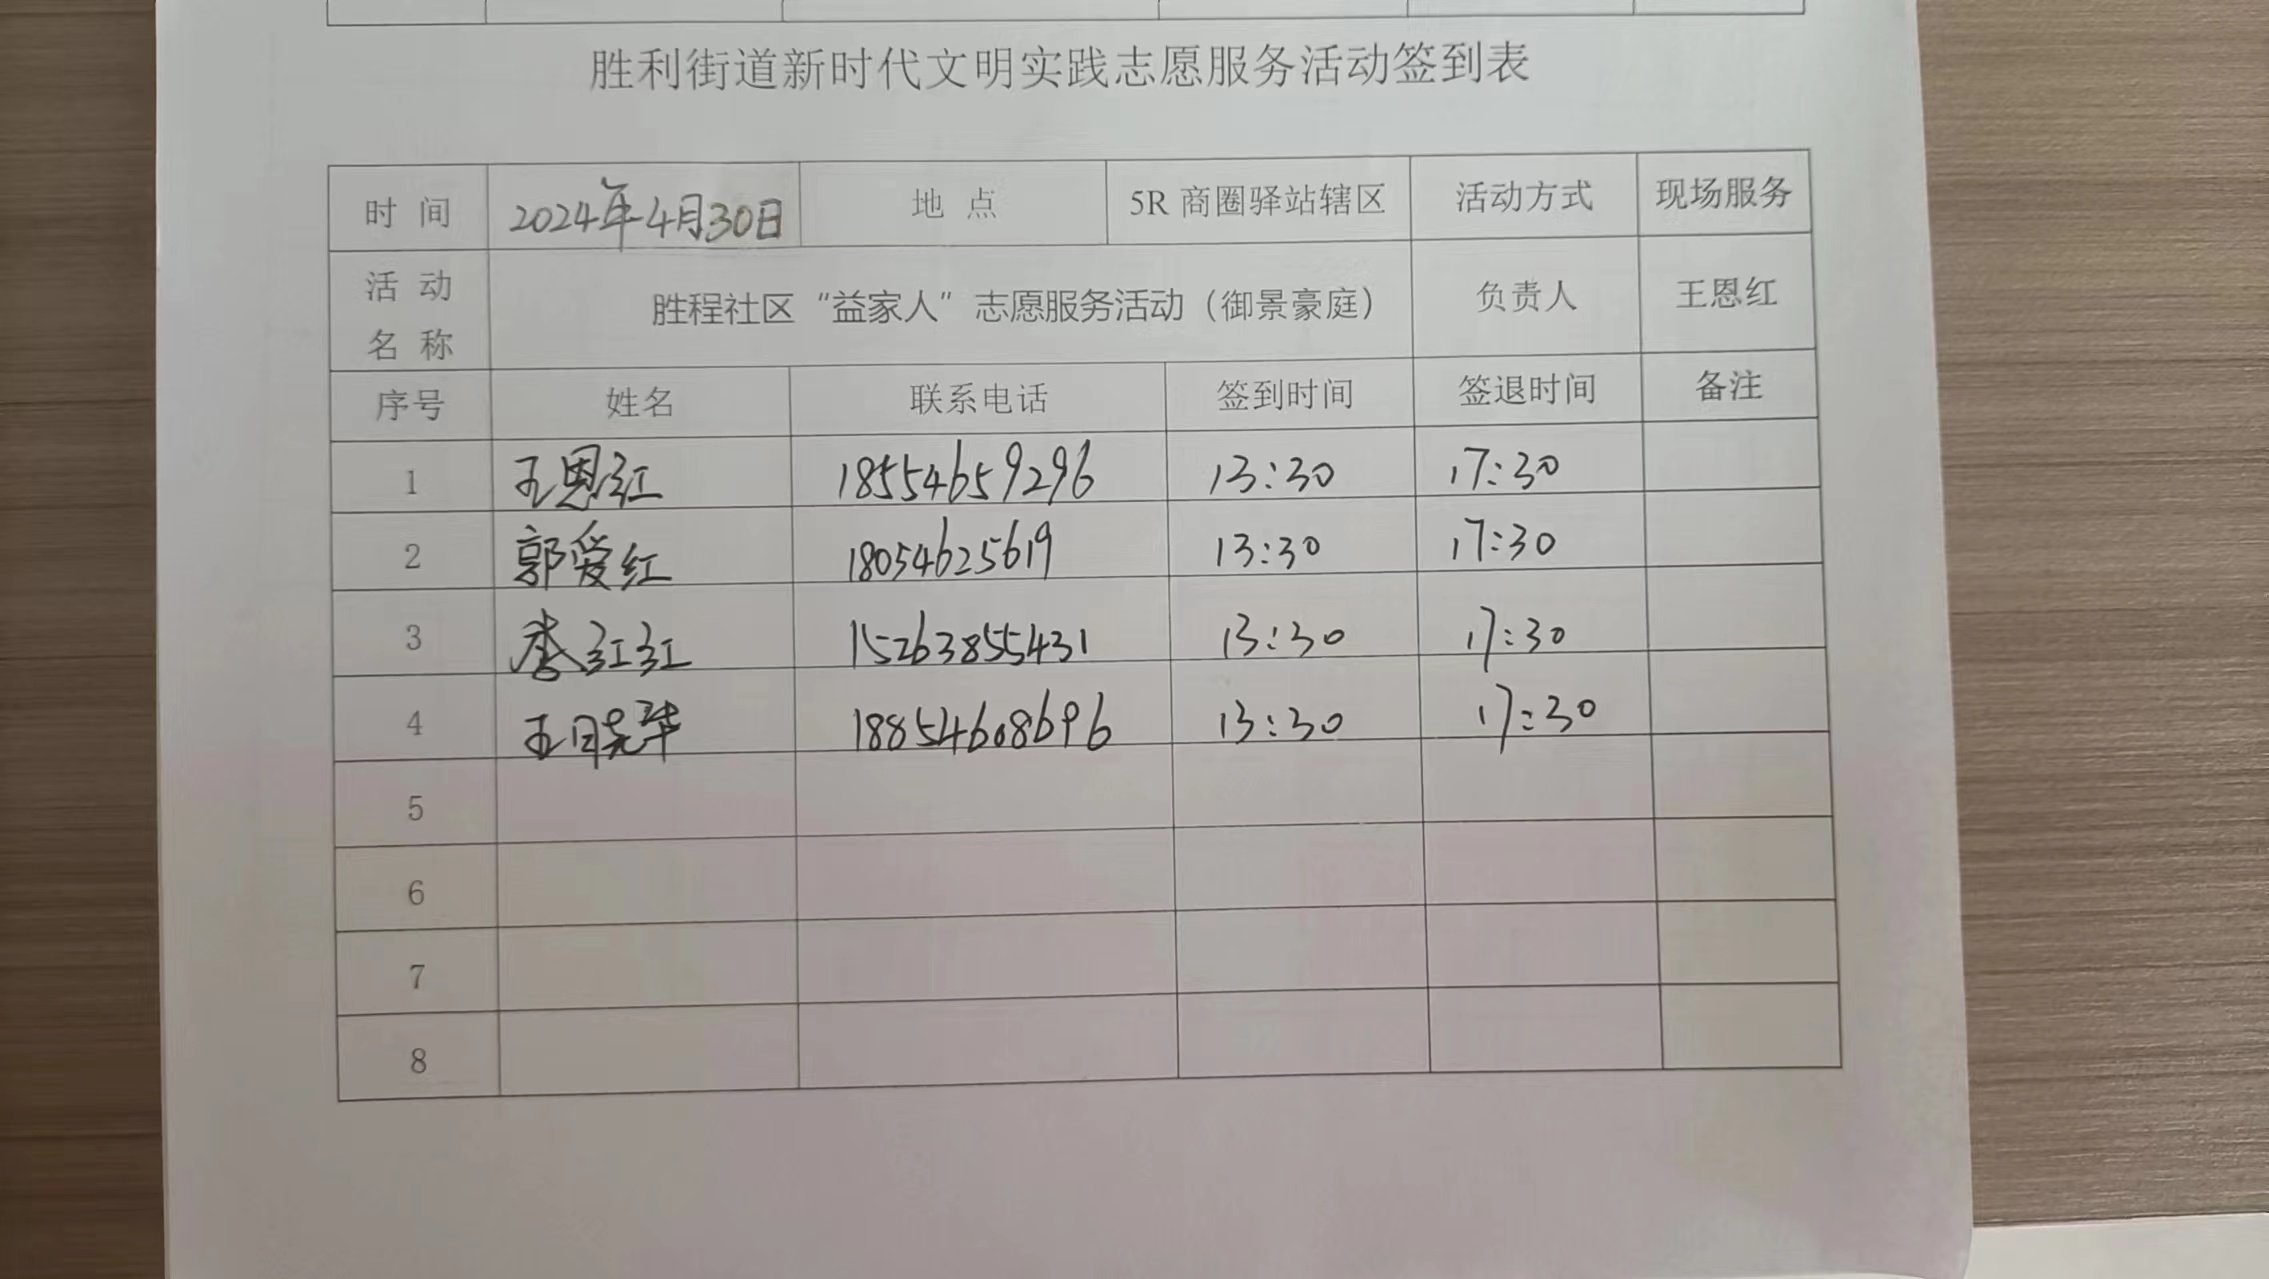 胜利街道新时代文明实践志愿服务活动签到表
时 间 2024年4月30日 地 点 5R 商圈驿站辖区 活动方式 现场服务
活 动
名 称 胜程社区“益家人”志愿服务活动（御景豪庭） 负责人 王恩红
序号 姓名 联系电话 签到时间 签退时间 备注
1 王恩红 18554659296 13:30 17:30
2 郭爱红 18054625619 13:30 17:30
3 李红红 15263855431 13:30 17:30
4 王晓华 18854608696 13:30 17:30
5
6
7
8